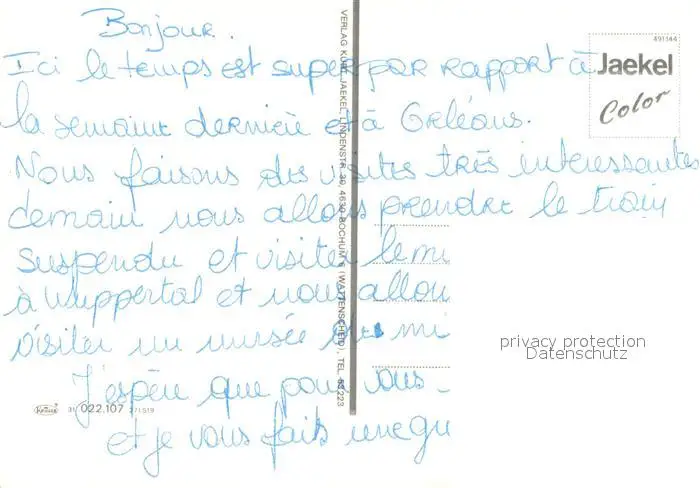 Bonjour.
Ici le temps est super par rapport à
la semaine dernière et à Orléans.
Nous faisons des visites très interessantes
demain nous allons prendre le train
suspendu et visiter le mu
à Wuppertal et nous allon
visiter un musée
J'espère que pour vous
et je vous fait une gr
VERLAG KURT JAEKEL, LINDENSTR. 30, 4630 BOCHUM 6 (WATTENSCHEID), TEL. 83223
491144
Jaekel
Color
privacy protection
Datenschutz
Krüger
31 022.107 271519